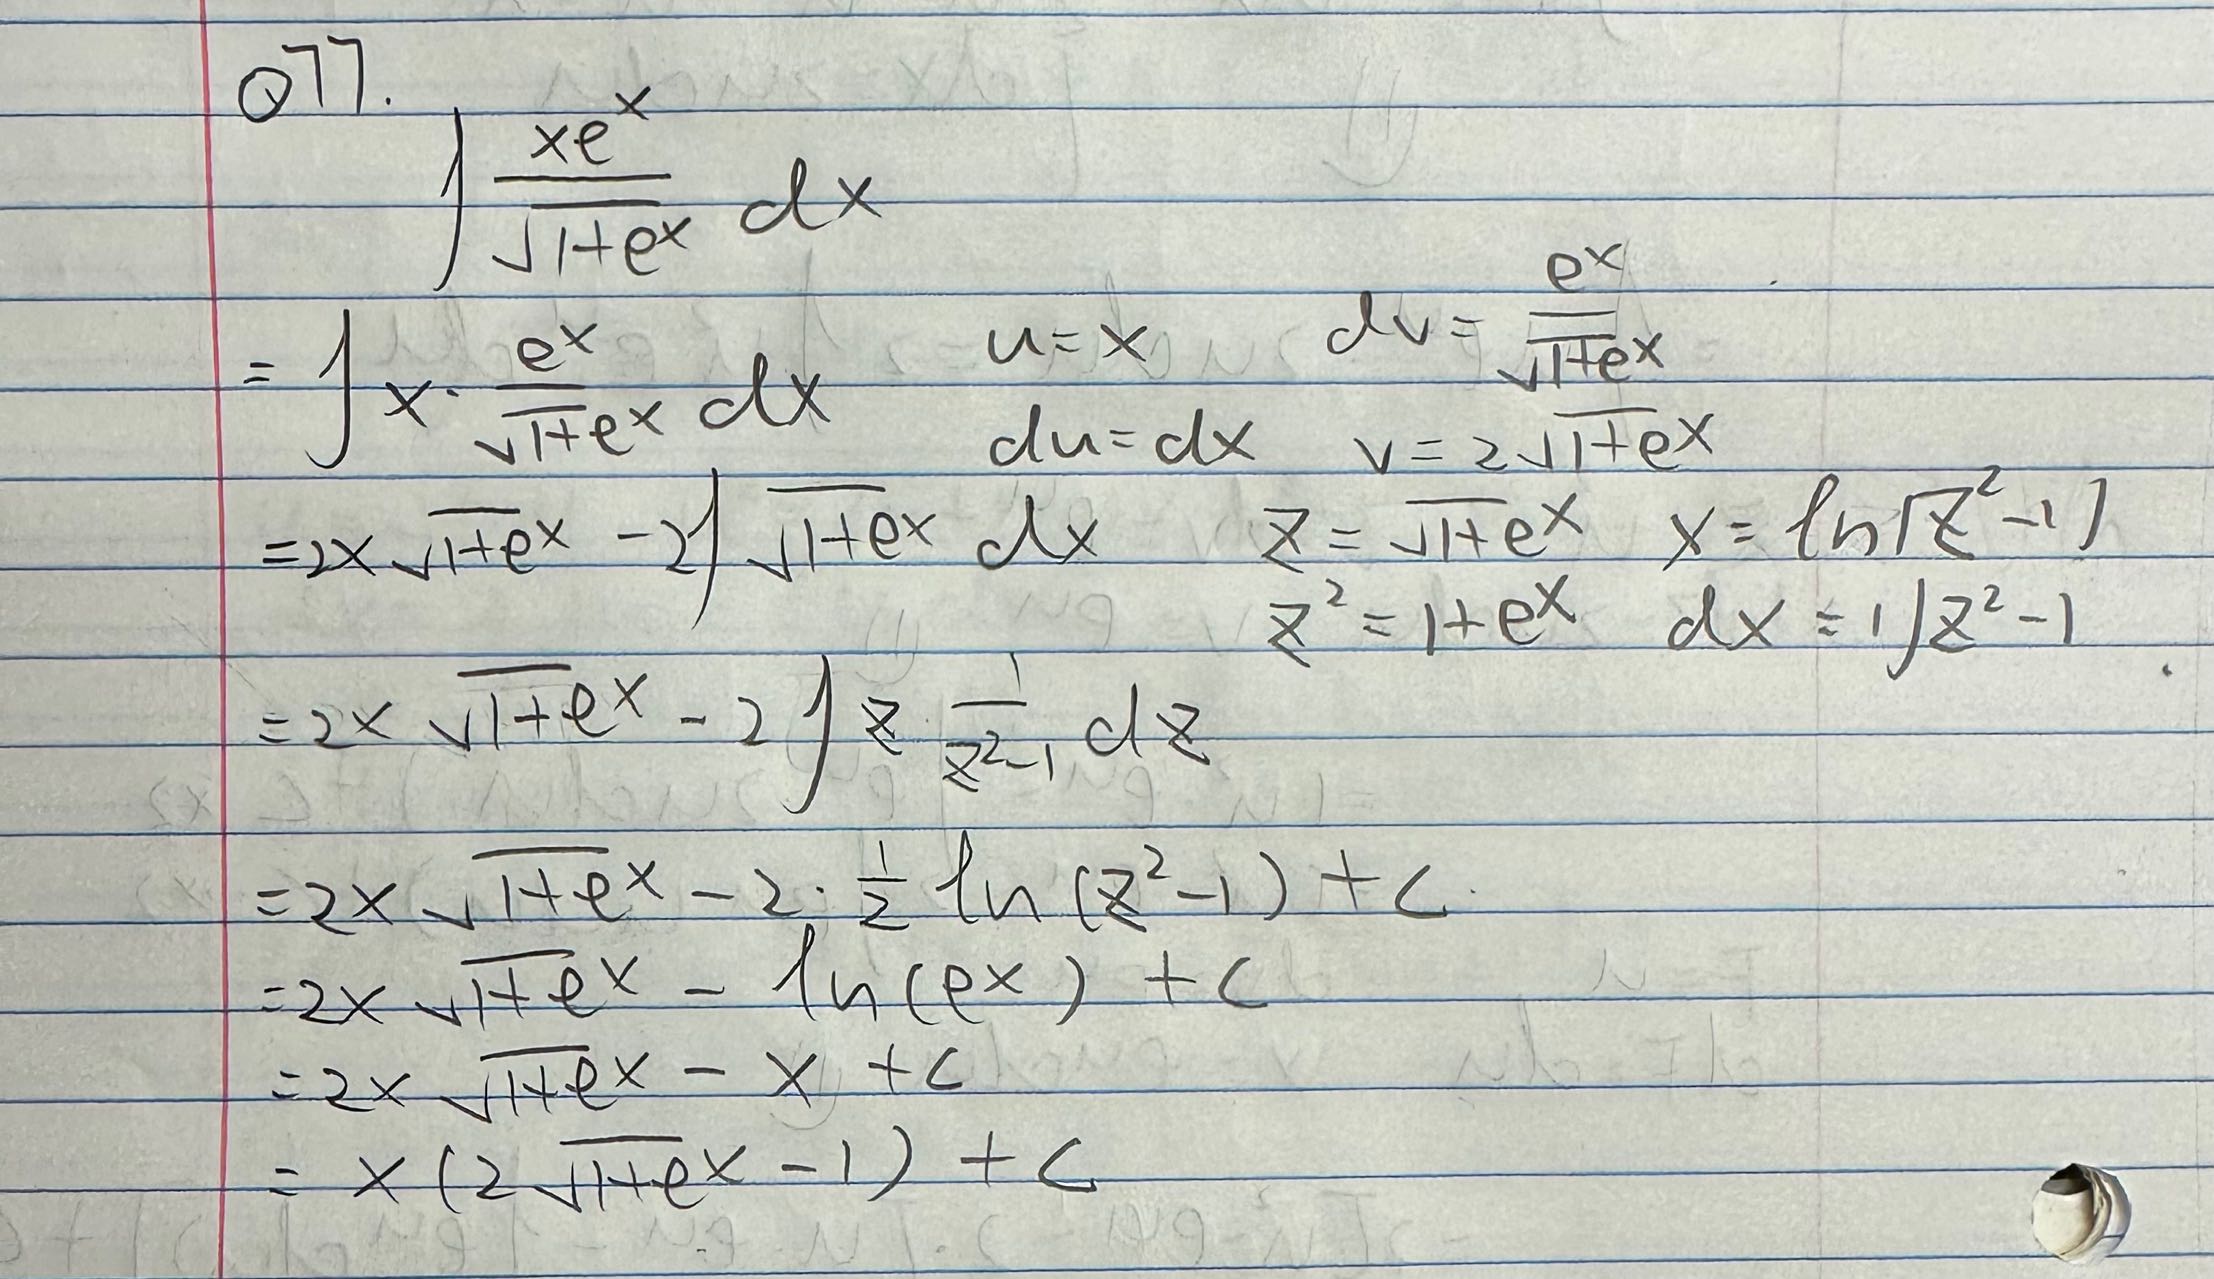 Q77.
∫ xe^x / √(1+e^x) dx
= ∫ x · e^x / √(1+e^x) dx   u = x   dv = e^x / √(1+e^x)
du = dx   v = 2√(1+e^x)
= 2x√(1+e^x) - 2∫ √(1+e^x) dx   z = √(1+e^x)   x = ln(z²-1)
z² = 1+e^x   dx = 1/z²-1
= 2x√(1+e^x) - 2∫ z · 1/(z²-1) dz
= 2x√(1+e^x) - 2 · 1/2 ln(z²-1) + C
= 2x√(1+e^x) - ln(e^x) + C
= 2x√(1+e^x) - x + C
= x(2√(1+e^x) - 1) + C